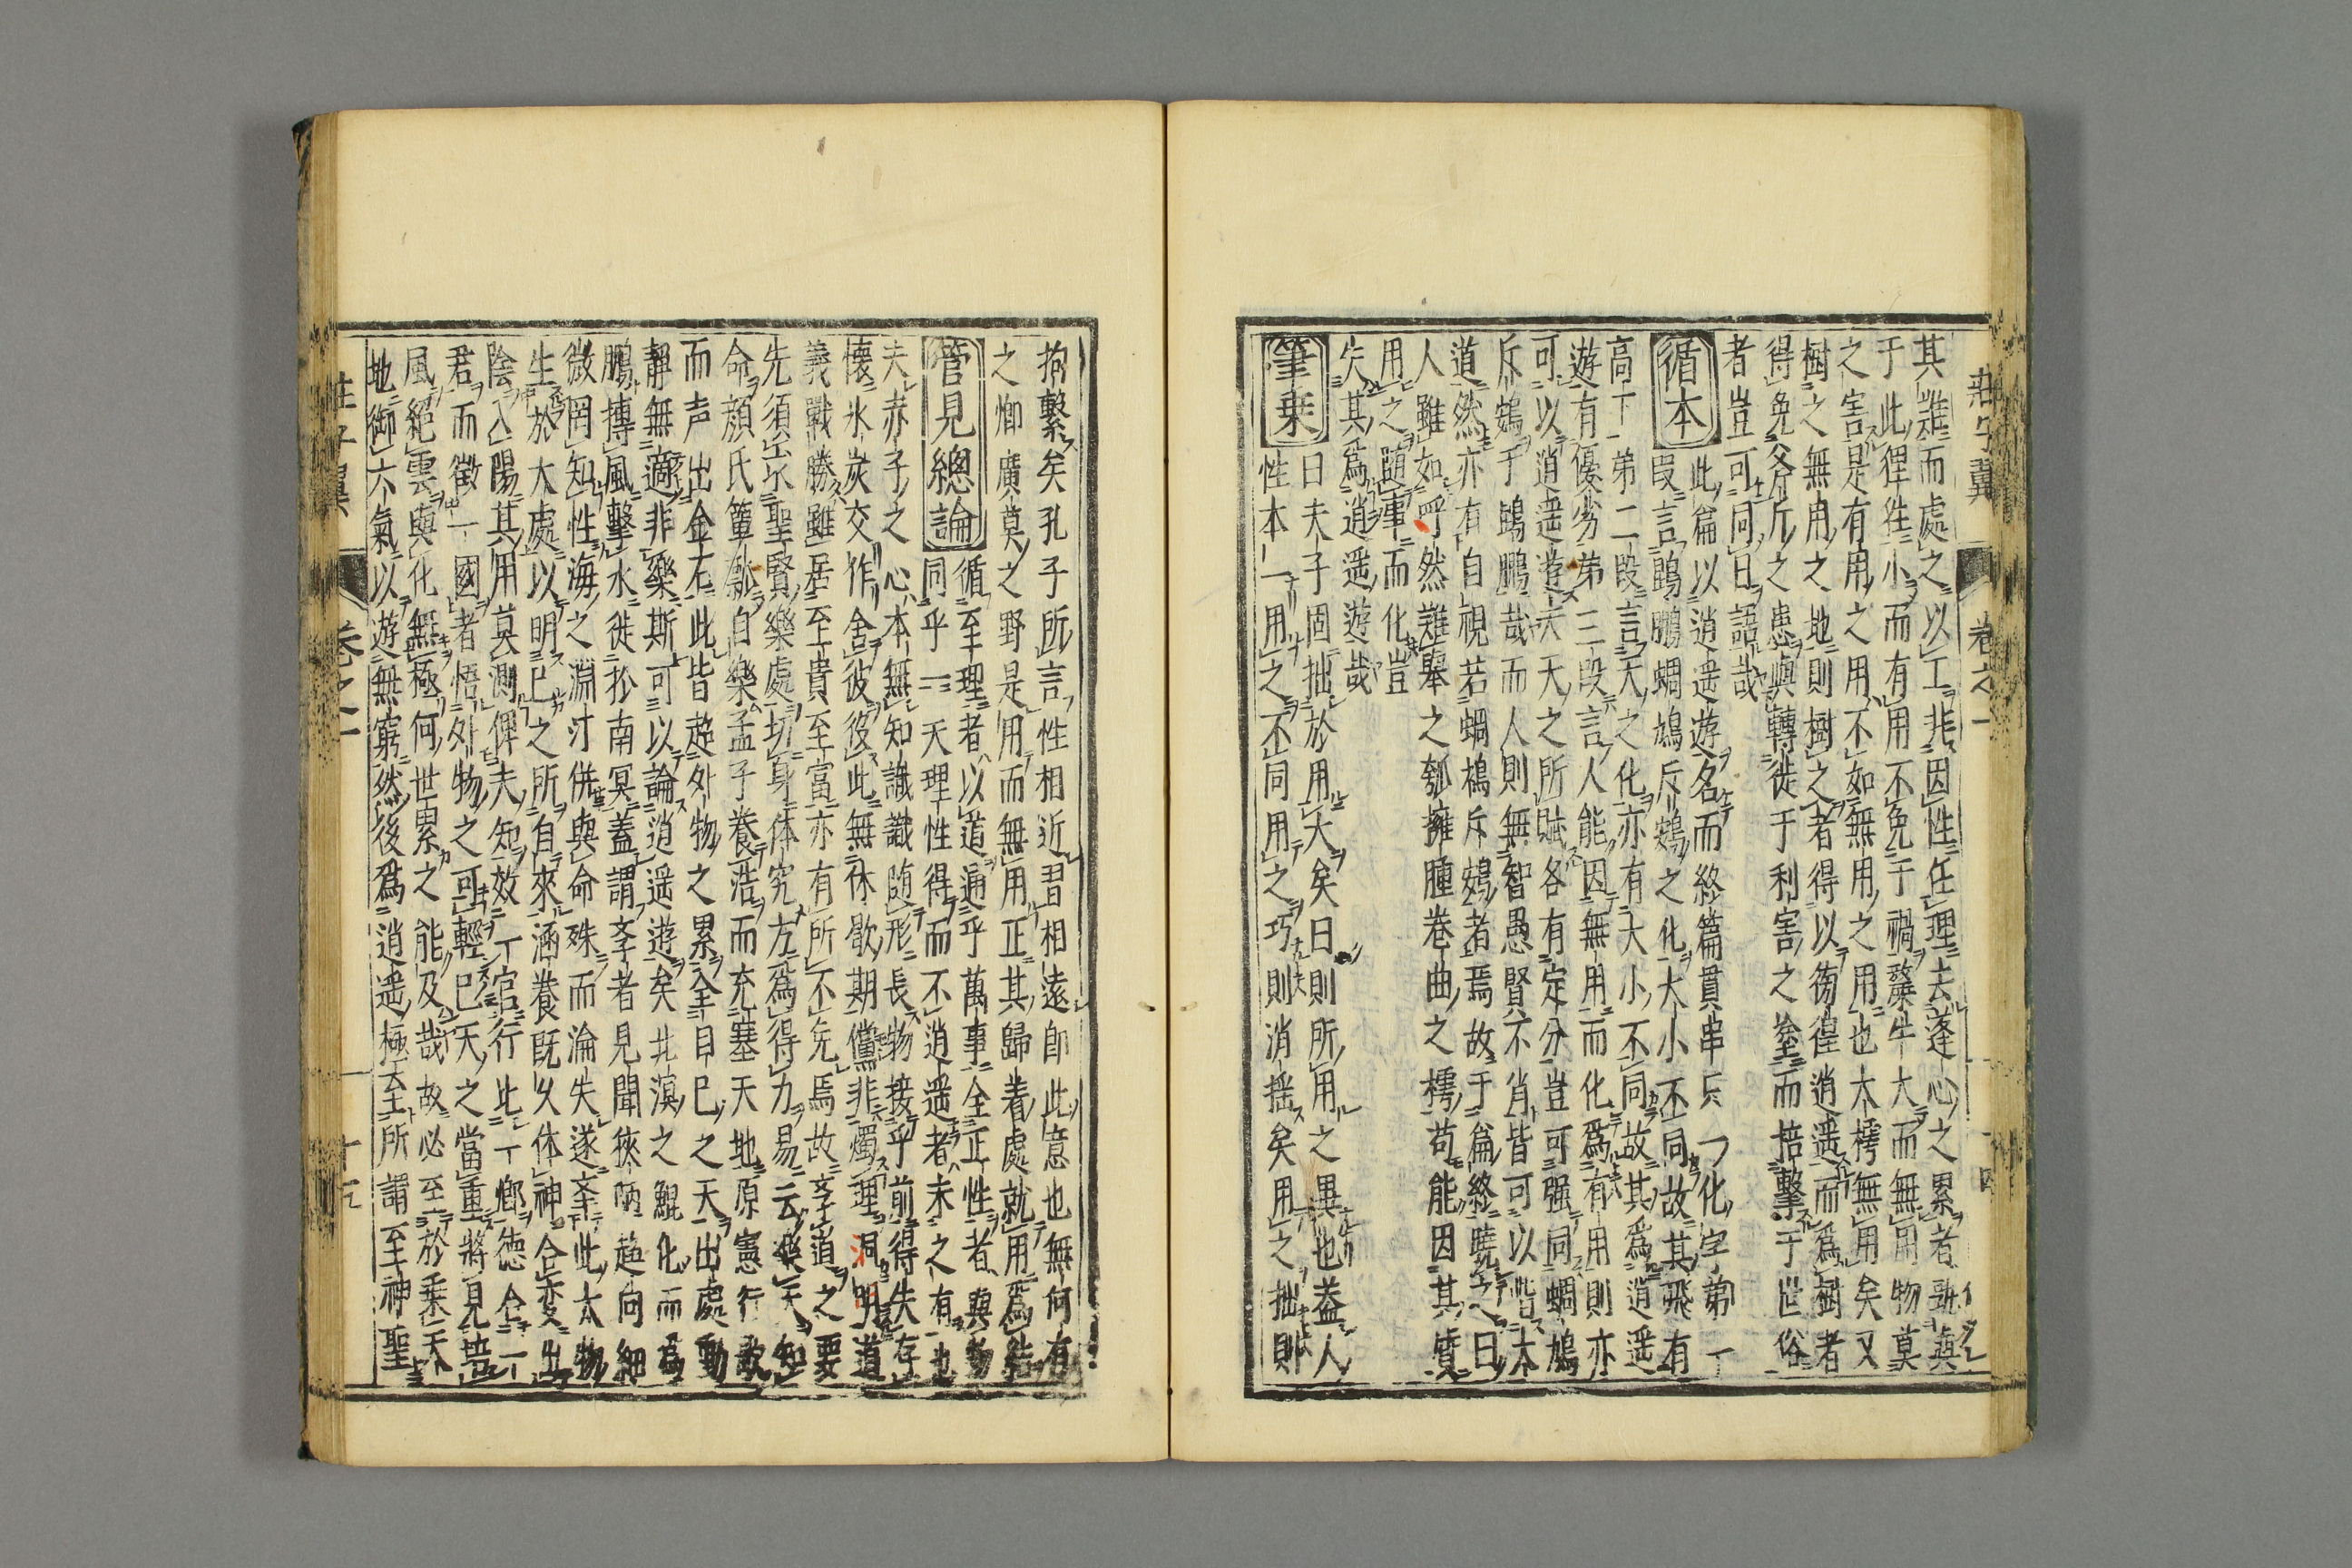 莊子翼 卷之一 十四
其雖而處之以工非因性任理去蓬心之累者歌與
于此狸狌小而有用不免于禍斄牛大而無用物莫
之害是有用之用不如無用之用也大樗無用矣又
樹之無用之地則樹之者得以徬徨逍遥而爲樹者
得免斧斤之患與轉徙于利害之塗而掊擊于世俗
者豈可同日語哉
循本
此篇以逍遥遊名而終篇貫串只一化字第一
段言鵾鵬蜩鳩斥鴳之化大小不同故其飛有
高下第二段言人之化亦有大小不同故其爲逍遥
遊有優劣第三段言人能因無用而化爲有用則亦
可以逍遥遊夫天之所賦各有定分豈可强同蜩鳩
斥鴳于鵾鵬哉而人則無智愚賢不肖皆可以階本
道然亦有自視若蜩鳩斥鴳者焉故于篇終曉之曰
人雖如呺然難舉之瓠擁腫卷曲之樗苟能因其質
用之随事而化豈
失其爲逍遥遊哉
筆乗
曰夫子固拙於用大矣曰則所用之異也葢人
性本一用之不同用之巧則消揺矣用之拙則
抱繫矣孔子所言性相近習相遠即此意也無何有
之鄉廣莫之野是用而無用正其歸着處就用爲結
管見總論
循至理者以道通乎萬事全正性者與物
同乎一天理性得而不逍遥者未之有也
夫赤子之心本無知識識随形長物接乎前得失存
懷氷炭交作舍彼役此無休歇期儻非燭理洞明道
義戰勝雖居至貴至富亦有所不免焉故孝道之要
先須求聖賢樂處切身体究方爲得力易云樂天知
命顔氏簞瓢自樂孟子養浩而充塞天地原憲行歌
而声出金石此皆超外物之累全自已之天出處動
靜無適非樂斯可以論逍遥遊矣北溟之鯤化而爲
鵬摶風擊水徙扵南冥蓋謂孝者見聞狹陋趨向細
微罔知性海之淵汙併與命殊而淪失遂孝此大物
生於大處以明已之所自來涵養既久体神合変出
陰入陽其用莫測俾夫知效一官行比一鄉德合一
君而徵一國者悟外物之可輕已天之當重將見培
風絕雲與化無極何世累之能及哉故必至於乗天
地御六氣以遊無窮然後爲逍遥極至所謂至神聖
莊子翼 卷之一 十五